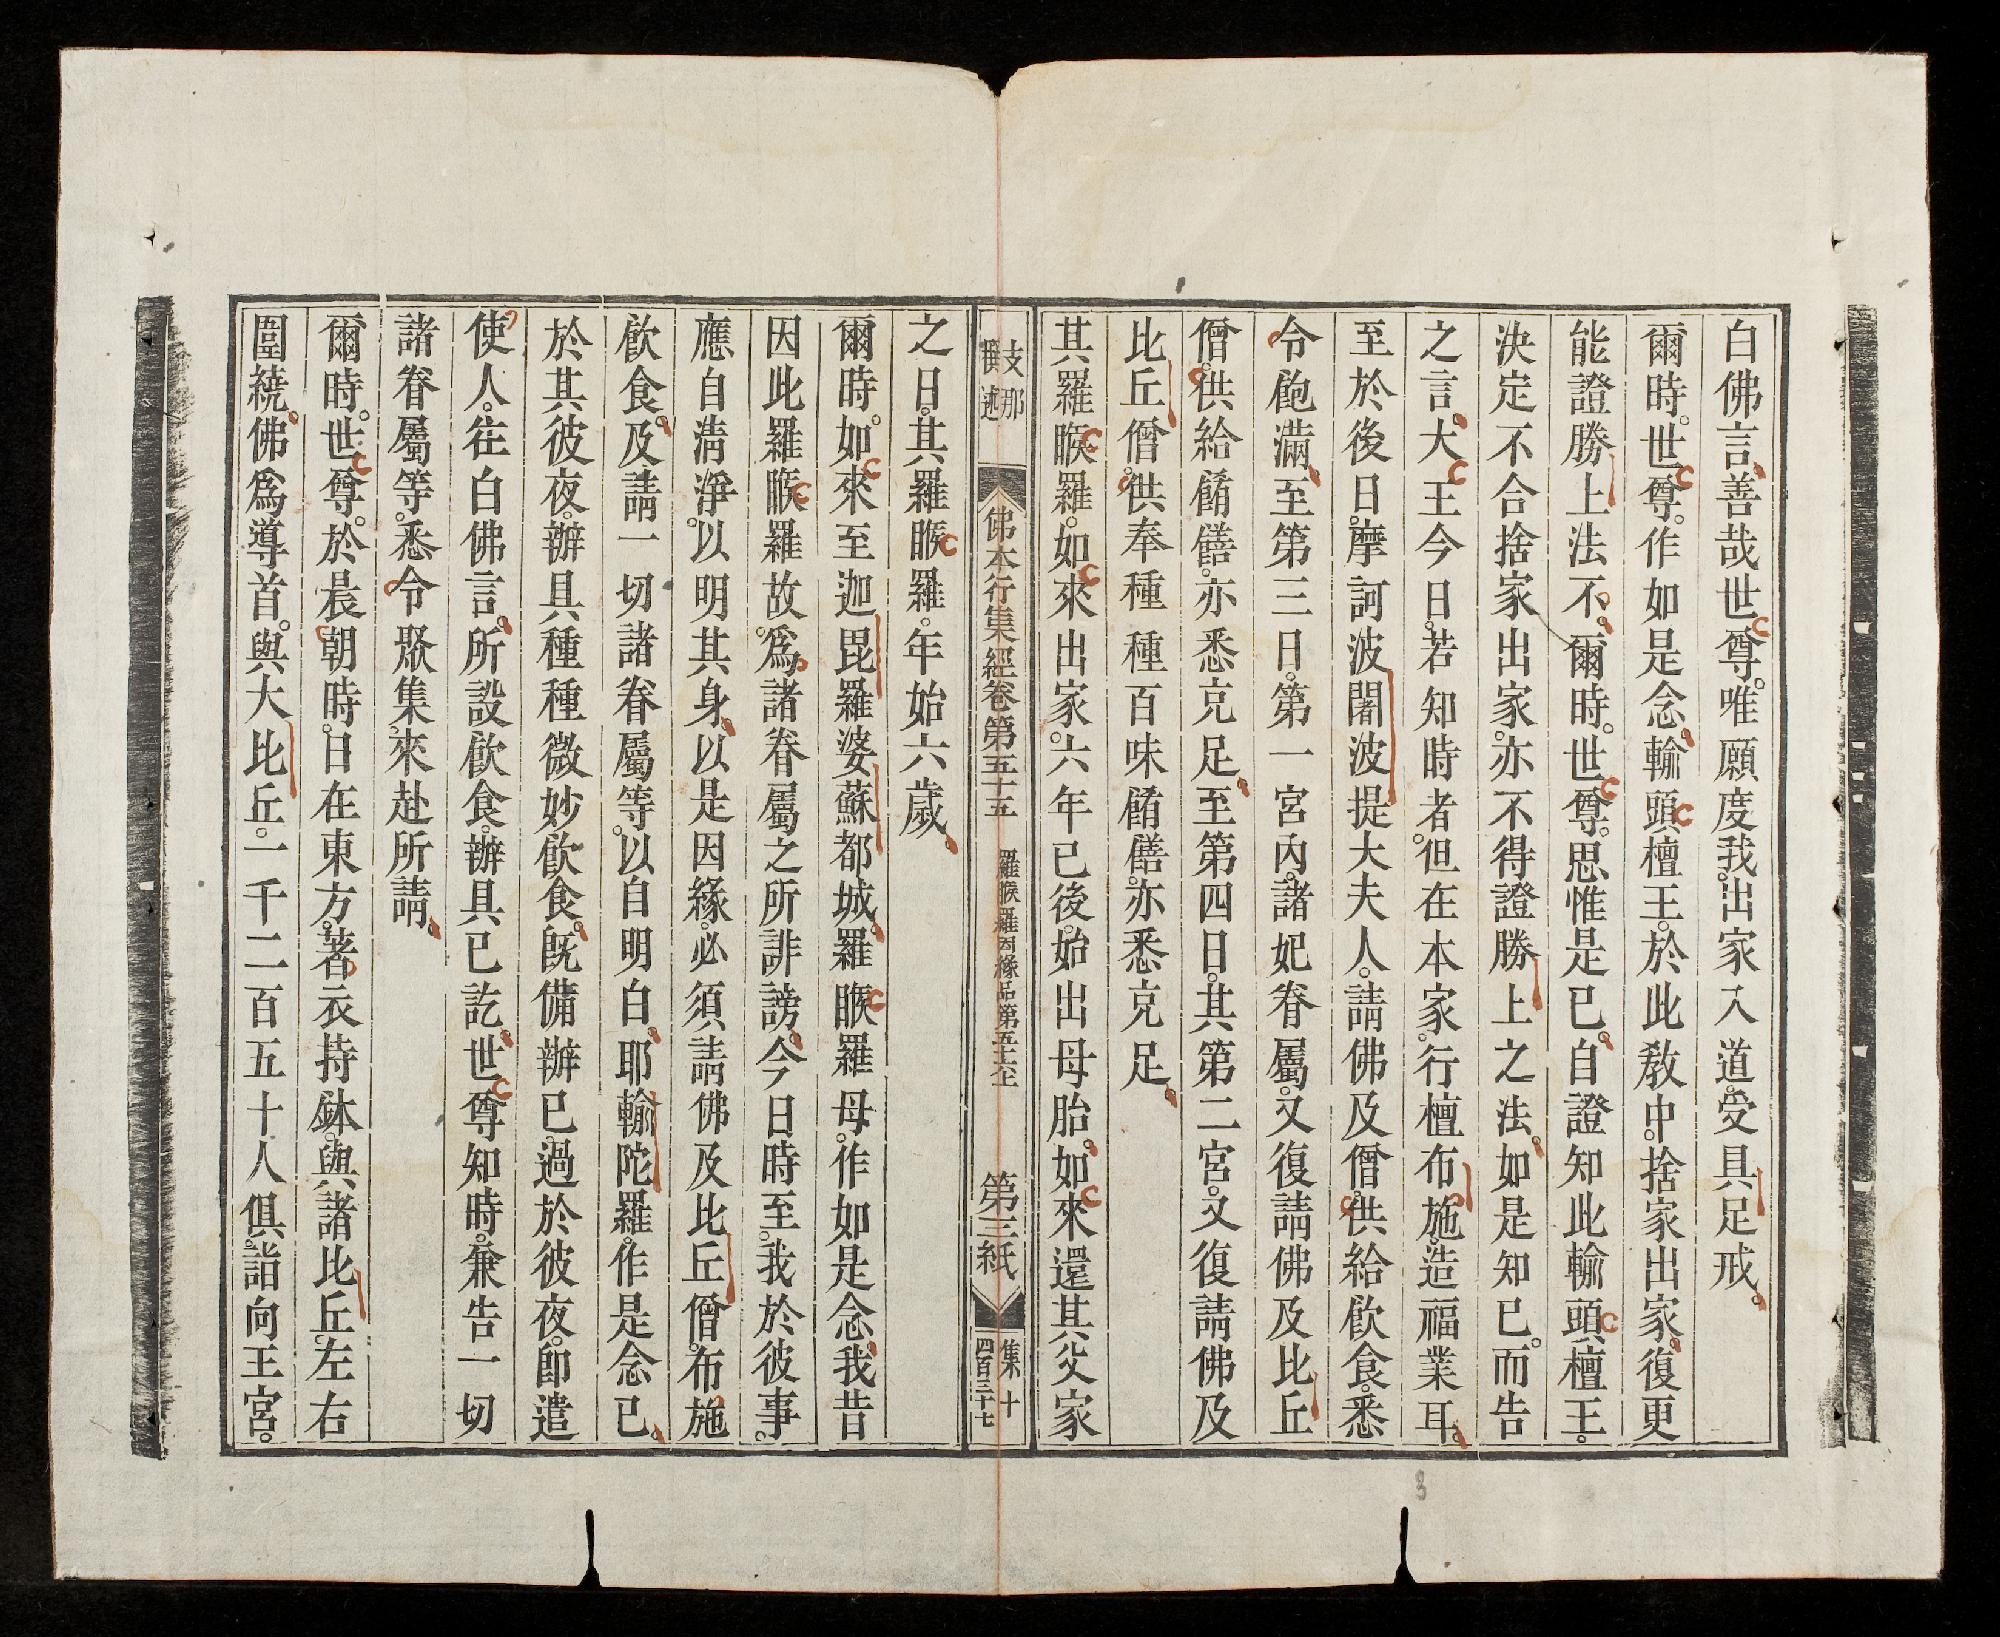 白佛言善哉世尊。唯願度我。出家入道。受具足戒。
爾時。世尊。作如是念。輸頭檀王。於此敎中。捨家出家。復更
能證勝上法不。爾時。世尊。思惟是已。自證知此輸頭檀王。
決定不合捨家出家。亦不得證勝上之法。如是知已。而告
之言。大王今日。若知時者。但在本家。行檀布施。造福業耳。
至於後日。摩訶波闍波提大夫人。請佛及僧。供給飲食。悉
令飽滿。至第三日。第一宮內。諸妃眷屬。又復請佛及比丘
僧。供給餚饍。亦悉充足。至第四日。其第二宮。又復請佛及
比丘僧。供奉種種百味餚饍。亦悉充足。
其羅睺羅。如來出家。六年已後。始出母胎。如來還其父家
支那
撰述
佛本行集經卷第五十五
羅睺羅因緣品第五十六上
第三紙
集十
四百三十七
之日。其羅睺羅。年始六歲。
爾時。如來至迦毘羅婆蘇都城。羅睺羅母。作如是念。我昔
因此羅睺羅故。爲諸眷屬之所誹謗。今日時至。我於彼事。
應自淸淨。以明其身。以是因緣。必須請佛及比丘僧。布施
飲食。及請一切諸眷屬等。以自明白。耶輸陀羅。作是念已。
於其彼夜。辦具種種微妙飲食。旣備辦已。過於彼夜。卽遣
使人。往白佛言。所設飲食。辦具已訖。世尊知時。兼告一切
諸眷屬等。悉令聚集。來赴所請。
爾時。世尊。於晨朝時。日在東方。著衣持鉢。與諸比丘。左右
圍繞。佛爲導首。與大比丘。一千二百五十人俱。詣向王宮。
3